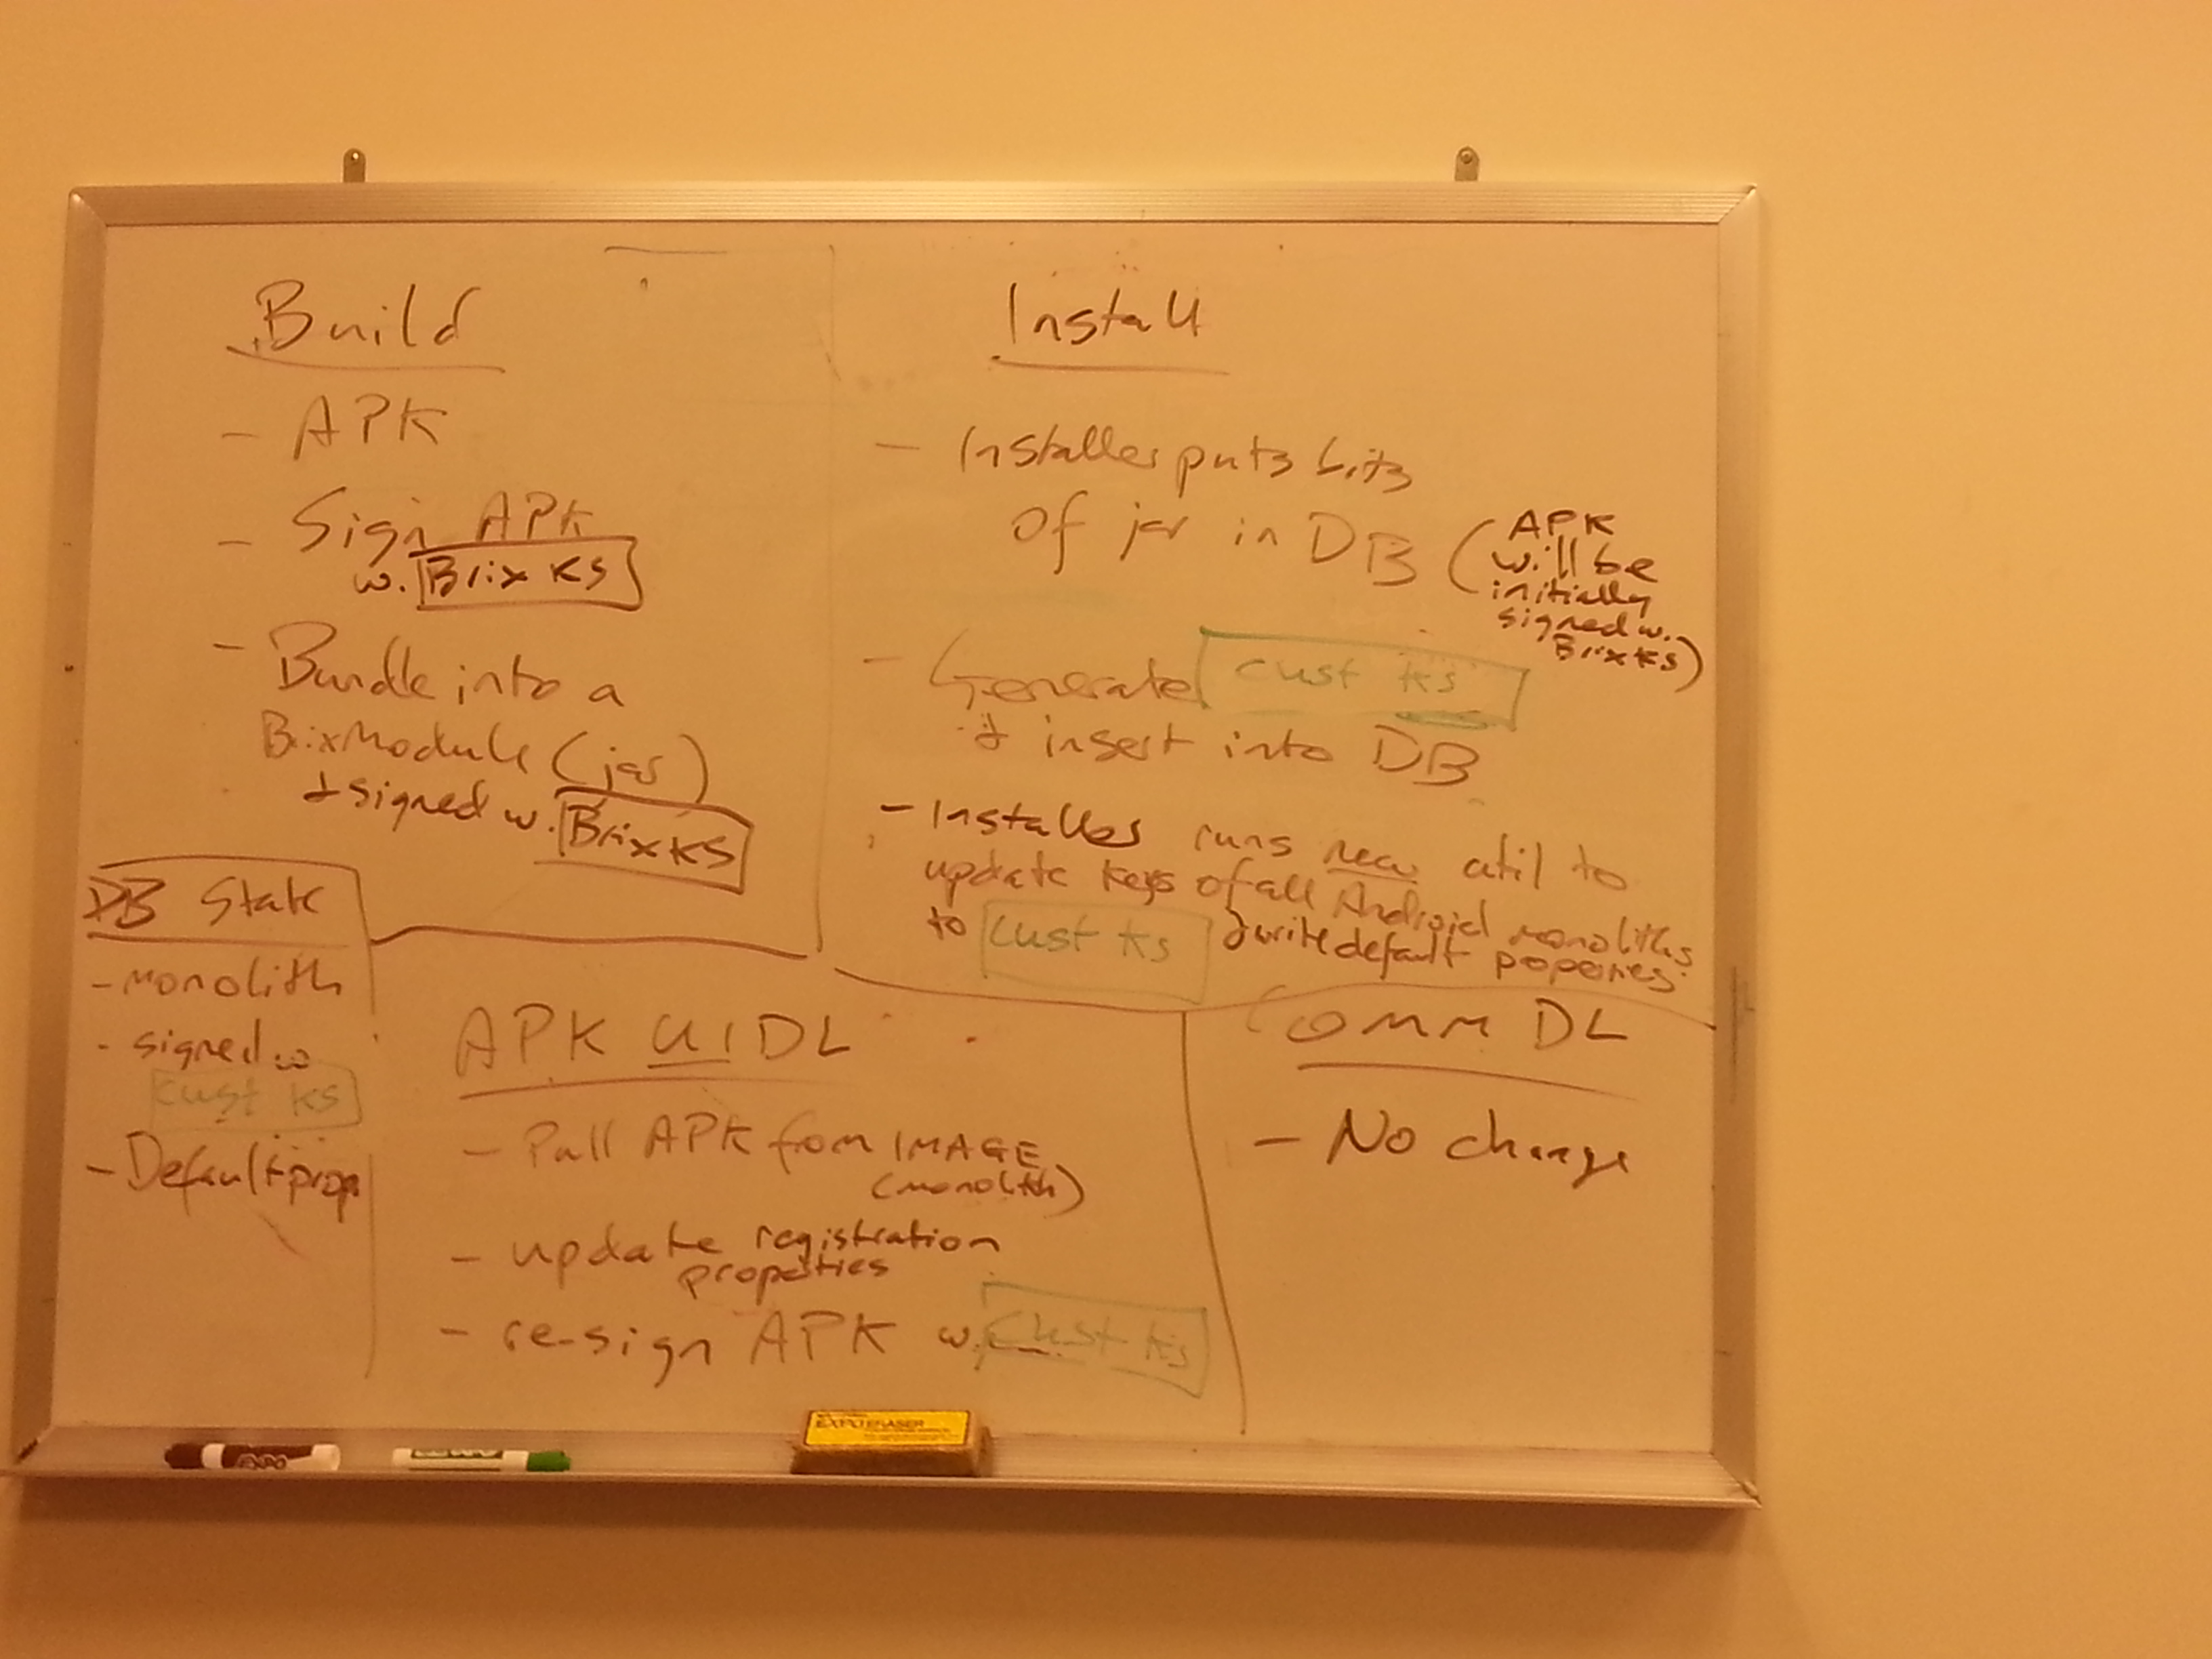 Build
- APK
- Sign APK
w. Brix KS
- Bundle into a
BrixModule (jar)
& signed w. BrixKS
Install
- Installer puts bits
of jar in DB (APK
will be
initially
signed w.
BrixKS)
- Generate cust ks
& insert into DB
- Installer runs new util to
update keys of all Android monoliths
to cust ks & write default properies.
DB State
- monolith
- signed w
cust ks
- Default prop
APK UI DL
- Pull APK from IMAGE
(monolith)
- update registration
properties
- re-sign APK w. Cust ks
Comm DL
- No change
EXPO ERASER